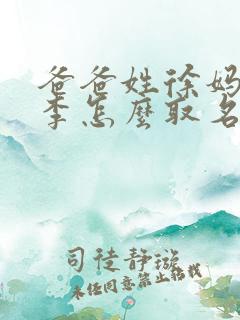 爸爸姓徐妈
李怎麼取名
司徒静璇
未经同意禁止转载